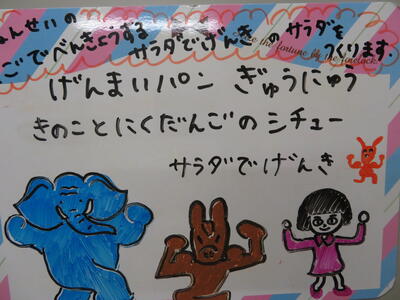 んせいの
ごでべんきょうする サラダでげんき のサラダを
つくります.
げんまいパン ぎゅうにゅう
きのことにくだんごのシチュー
サラダでげんき